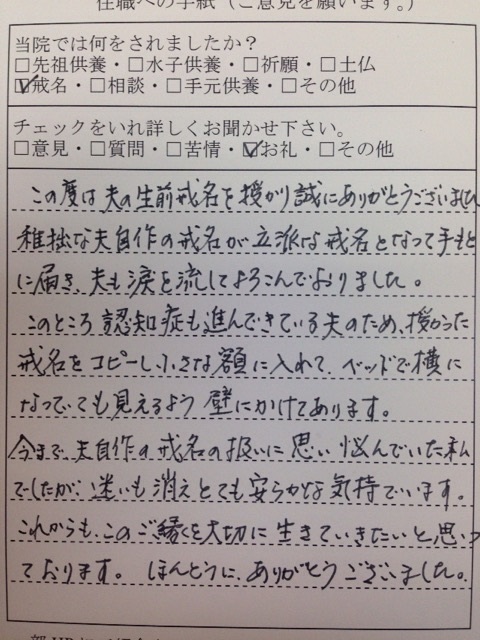 住職への手紙（ご意見を願います。）
当院では何をされましたか？
□先祖供養・□水子供養・□祈願・□土仏
☑戒名・□相談・□手元供養・□その他
チェックをいれ詳しくお聞かせ下さい。
□意見・□質問・□苦情・☑お礼・□その他
この度は夫の生前戒名を授かり誠にありがとうございました
稚拙な夫自作の戒名が立派な戒名となって手もと
に届き、夫も涙を流してよろこんでおりました。
このところ認知症も進んできている夫のため、授かった
戒名をコピーし小さな額に入れて、ベッドで横に
なっていても見えるよう壁にかけてあります。
今まで、夫自作の戒名の扱いに思い悩んでいた私
でしたが、迷いも消えとても安らかな気持でいます。
これからも、このご縁を大切に生きていきたいと思っ
ております。ほんとうに、ありがとうございました。